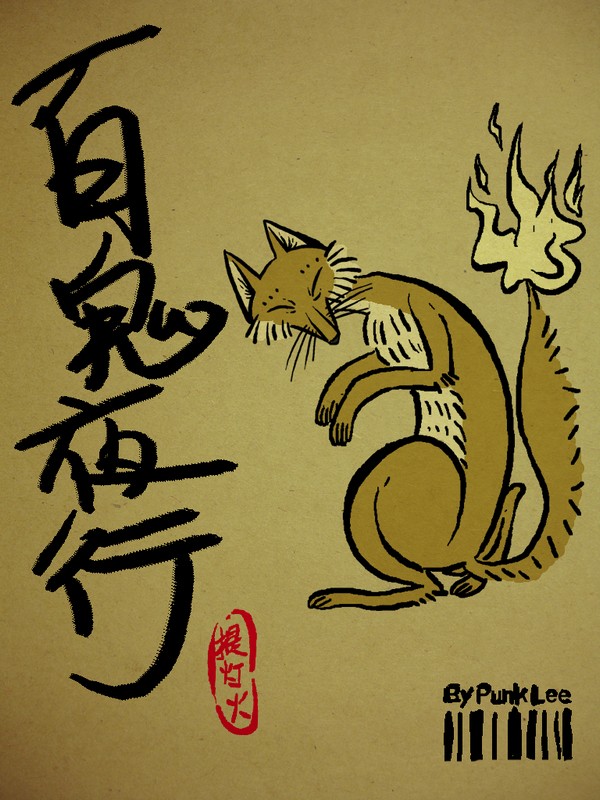 百鬼夜行
提灯火
By Punk Lee